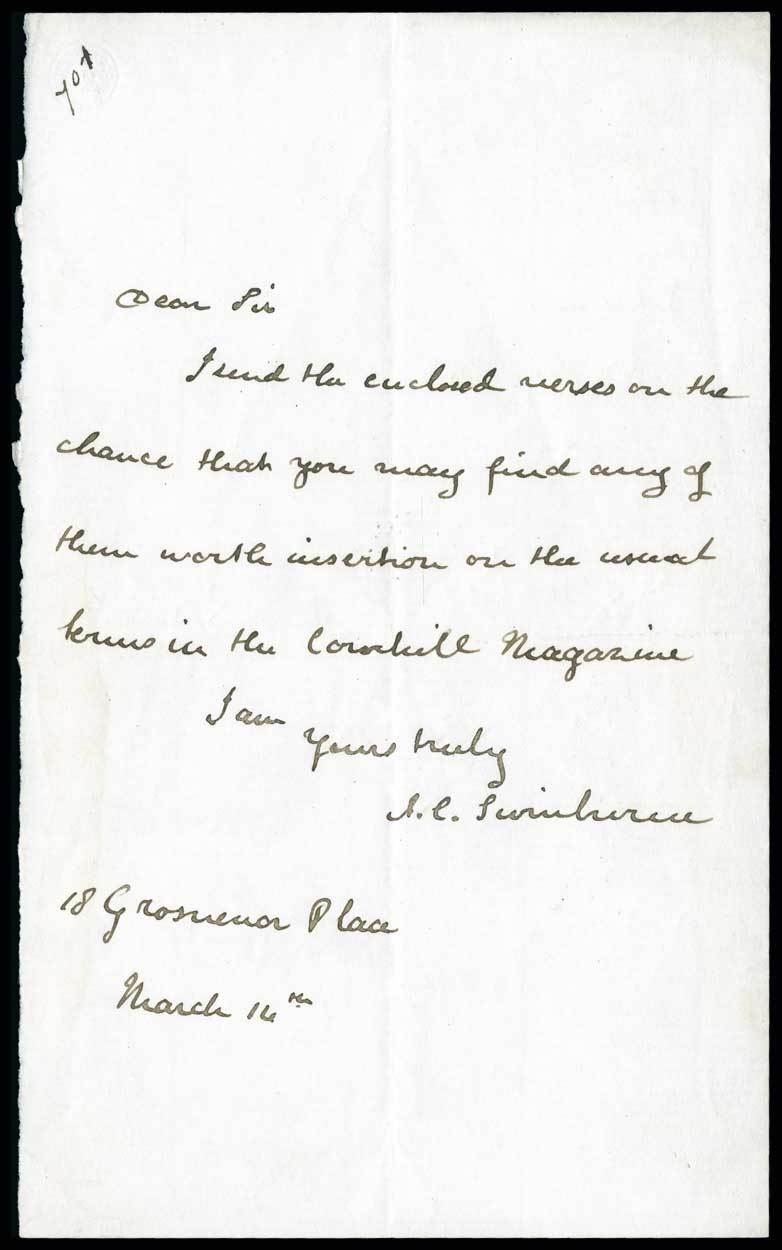 Dear Sir
I send the enclosed verses on the
chance that you may find any of
them worth insertion on the usual
terms in the Cornhill Magazine
I am
Yours truly
A. C. Swinburne
18 Grosvenor Place
March 14th